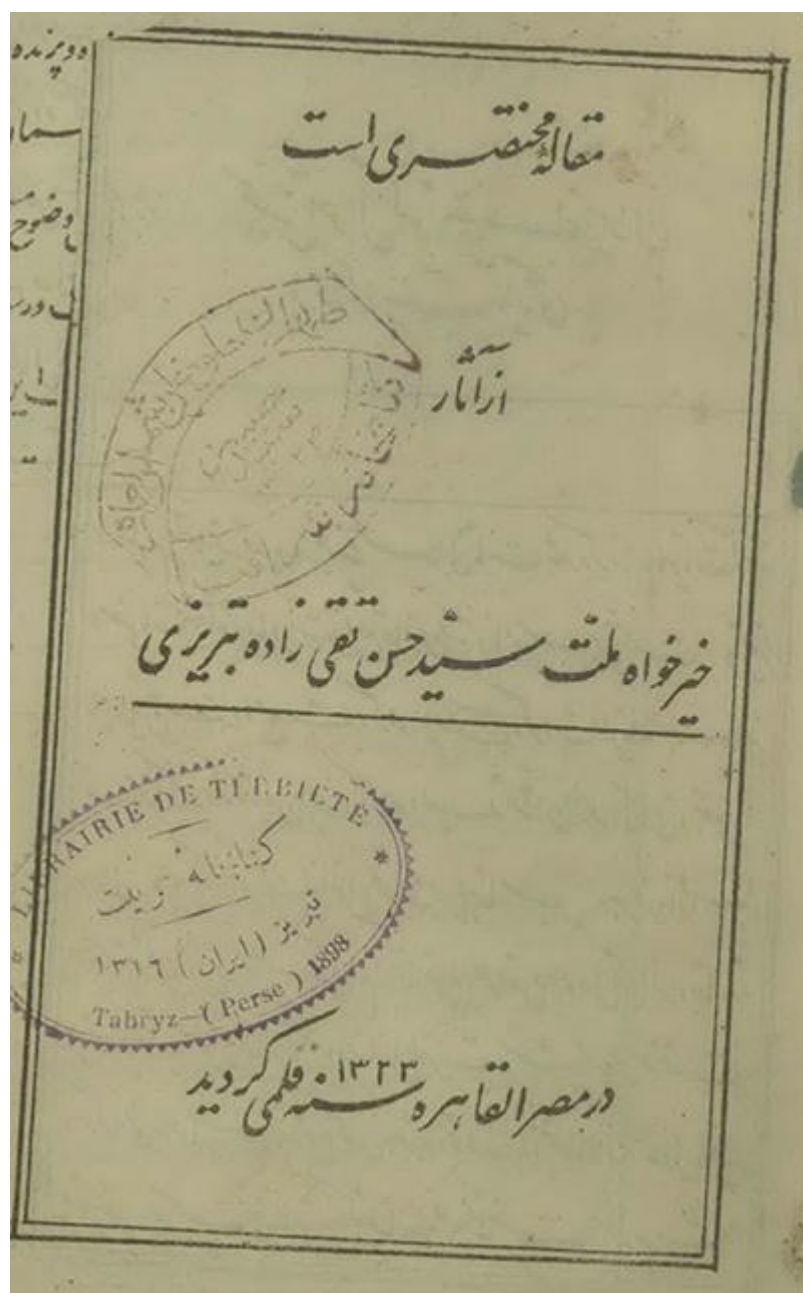 مقالهٔ مختصری است
از آثار
خیرخواه ملت سید حسن تقی زاده تبریزی
LIBRAIRIE DE TERBIETE
کتابخانه تربیت
تبریز (ایران) ١٣١٦
Tabryz-(Perse) 1898
در مصر القاهره سنه ١٣٢٣ قلمی گردید
دو پرنده
وضوح